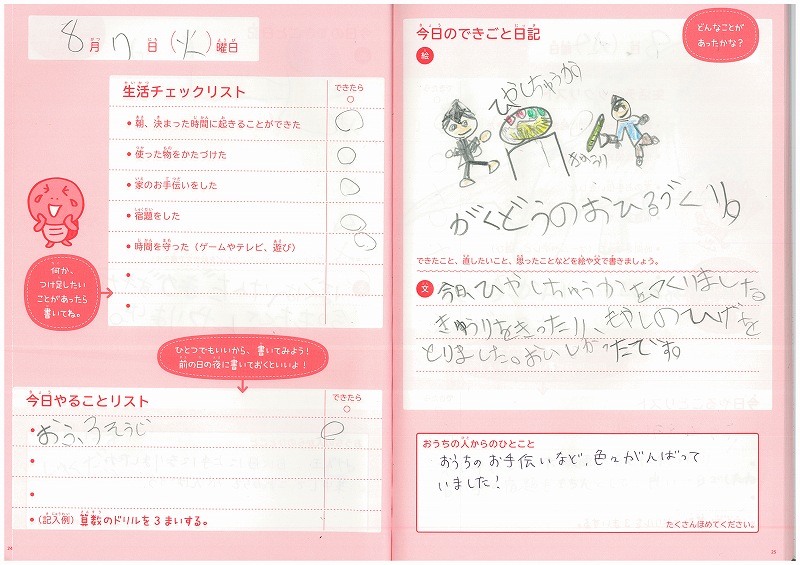 8月7日(火)曜日
生活チェックリスト
できたら
○
● 朝、決まった時間に起きることができた
● 使った物をかたづけた
● 家のお手伝いをした
● 宿題をした
● 時間を守った(ゲームやテレビ、遊び)
何か、
つけ足したい
ことがあったら
書いてね。
ひとつでもいいから、書いてみよう!
前の日の夜に書いておくといいよ!
今日やることリスト
できたら
○
● おふろそうじ
● (記入例) 算数のドリルを3まいする。
24
今日のできごと日記
どんなことが
あったかな?
絵
ひやしちゅうか
きゅうり
がくどうのおひるづくり
できたこと、直したいこと、思ったことなどを絵や文で書きましょう。
文
今日、ひやしちゅうかをつくりました。
きゅうりをきったり、もやしのひげを
とりました。おいしかったです。
おうちの人からのひとこと
おうちのお手伝いなど、色々がんばって
いました!
たくさんほめてください。
25